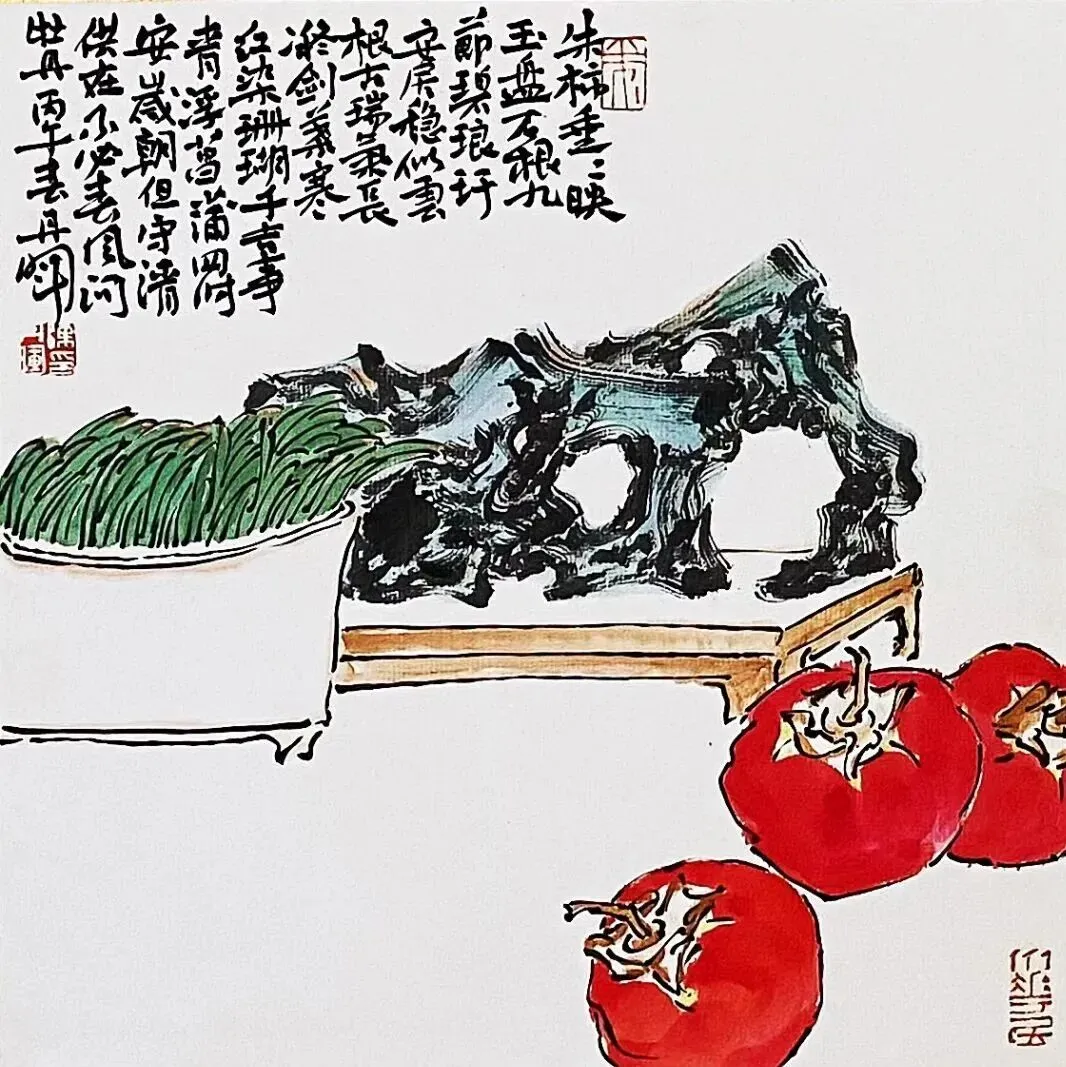 朱柿垂垂映
玉盘石根九
节碧琅玕
安居稳似云
根古瑞气长
凝剑叶寒
红染珊瑚千吉事
青浮菖蒲四时
安岁朝但守清
供在不必春风问
牡丹丙午春丹晖